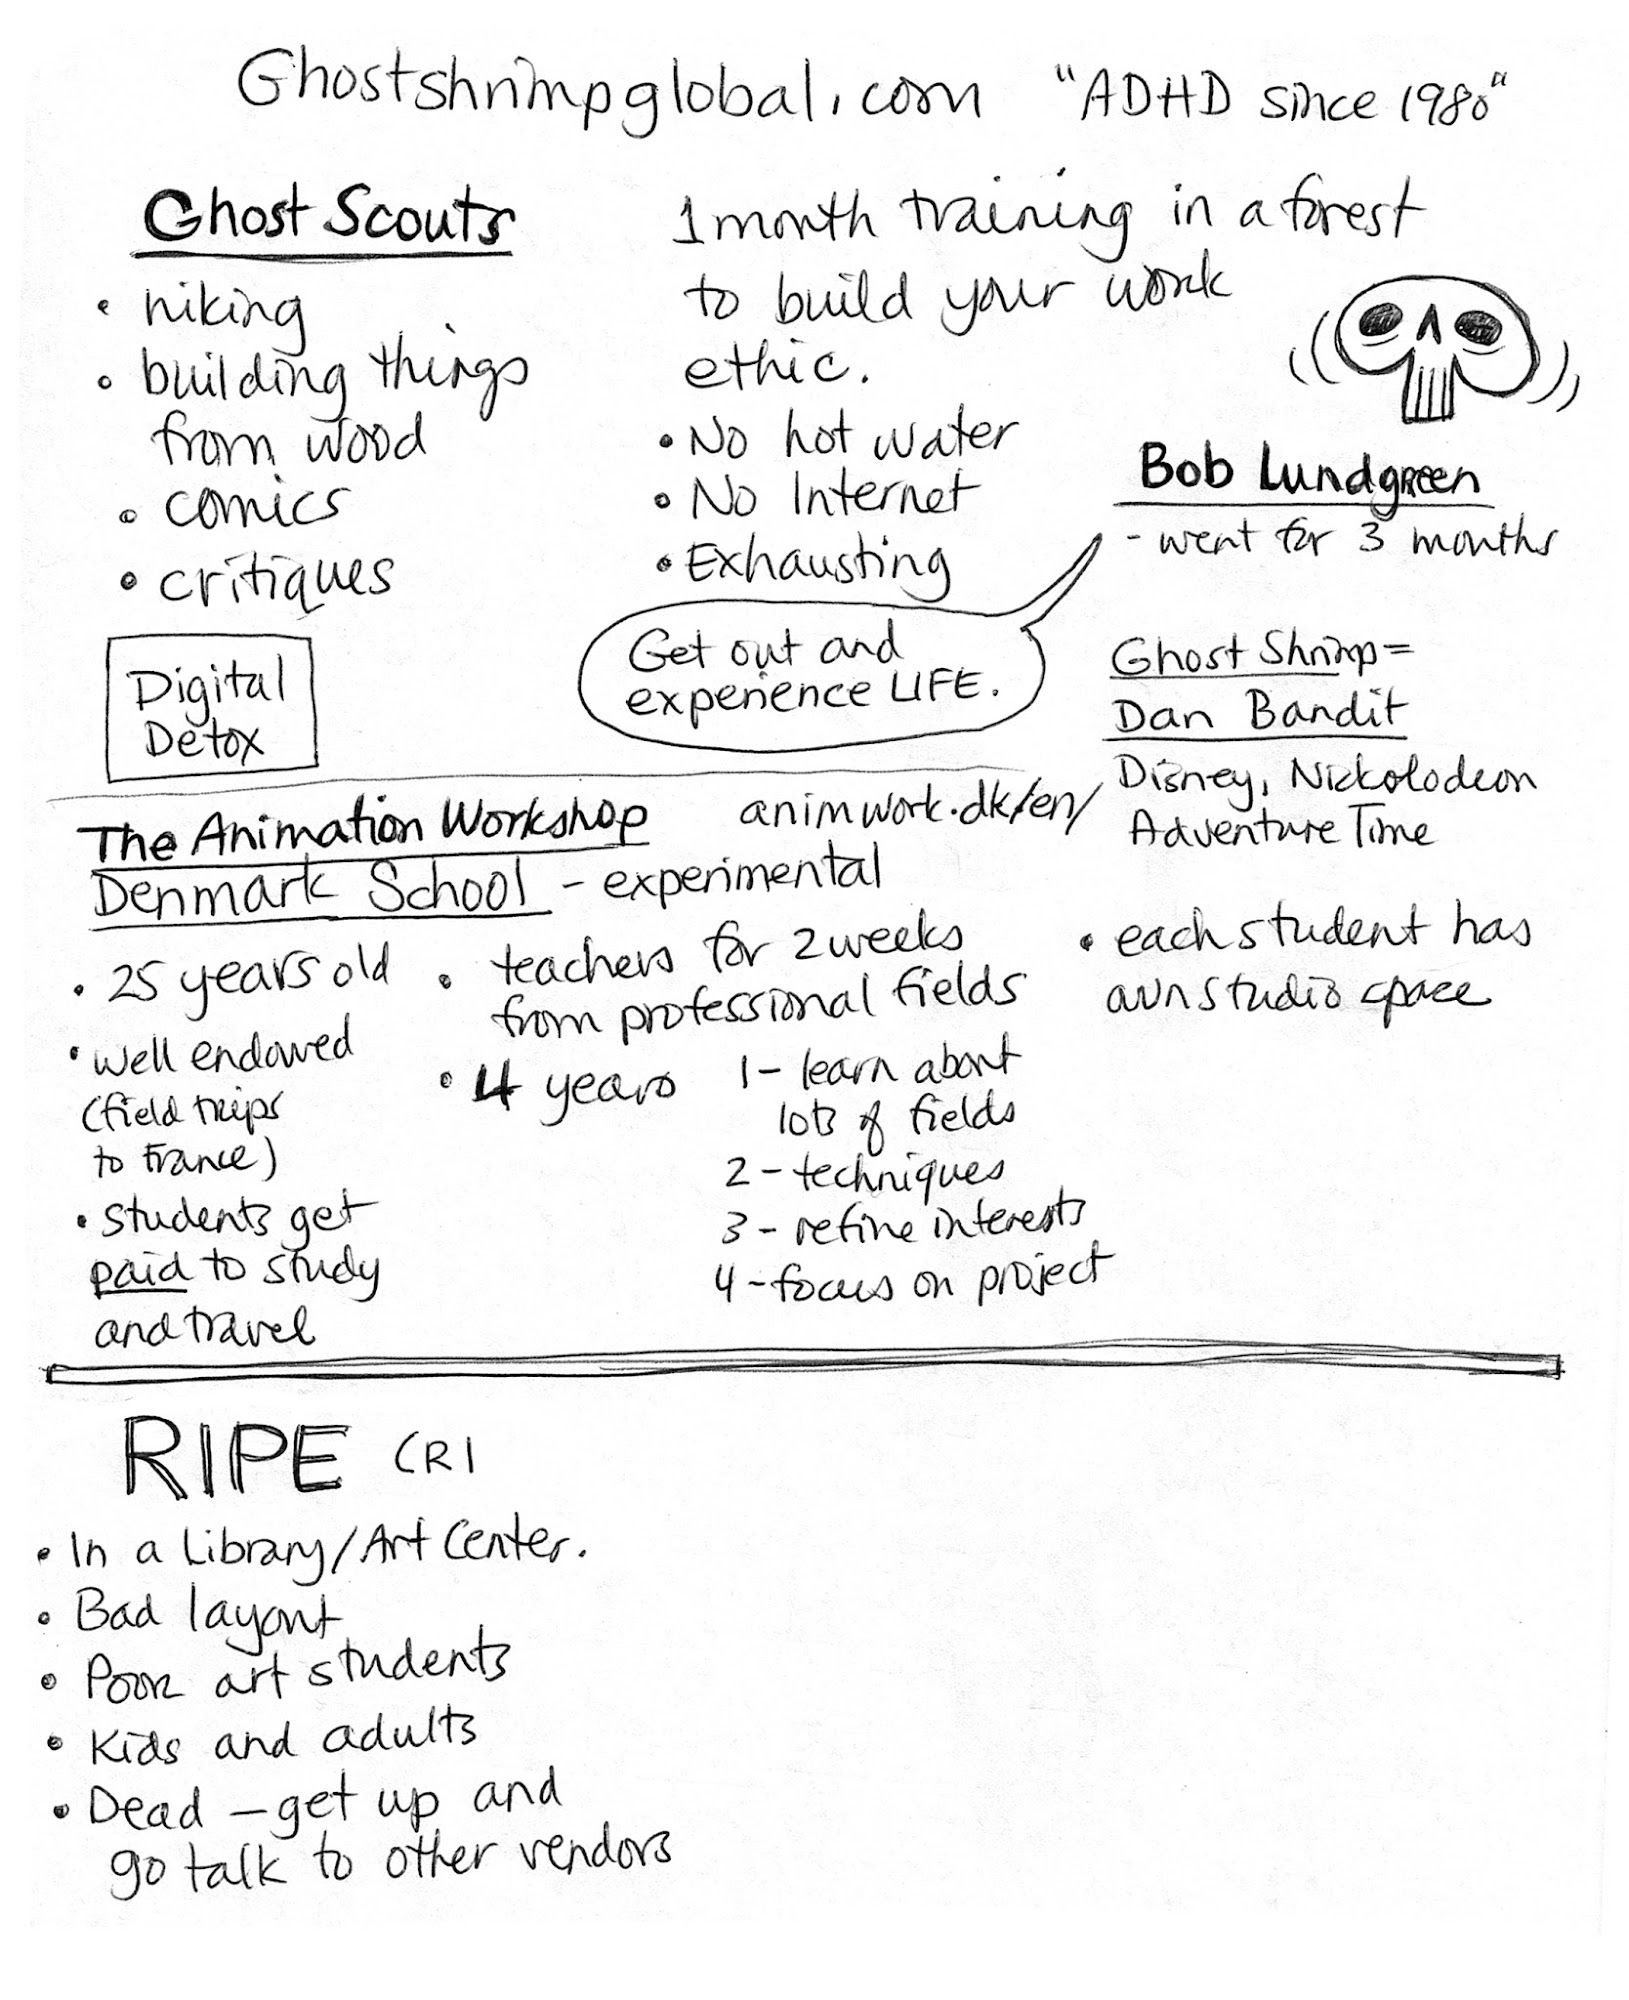 Ghostshrimpglobal.com "ADHD since 1980"
Ghost Scouts
• hiking
• building things
from wood
• comics
• critiques
Digital
Detox
1 month training in a forest
to build your work
ethic.
• No hot water
• No Internet
• Exhausting
Get out and
experience LIFE.
Bob Lundgreen
- went for 3 months
Ghost Shrimp =
Dan Bandit
Disney, Nickolodeon
Adventure Time
The Animation Workshop animwork.dk/en/
Denmark School - experimental
• 25 years old
• well endowed
(field trips
to France)
• students get
paid to study
and travel
• teachers for 2 weeks
from professional fields
• 4 years
1 - learn about
lots of fields
2 - techniques
3 - refine interests
4 - focus on project
• each student has
own studio space
RIPE (RI
• In a Library/Art Center.
• Bad layout
• Poor art students
• Kids and adults
• Dead - get up and
go talk to other vendors